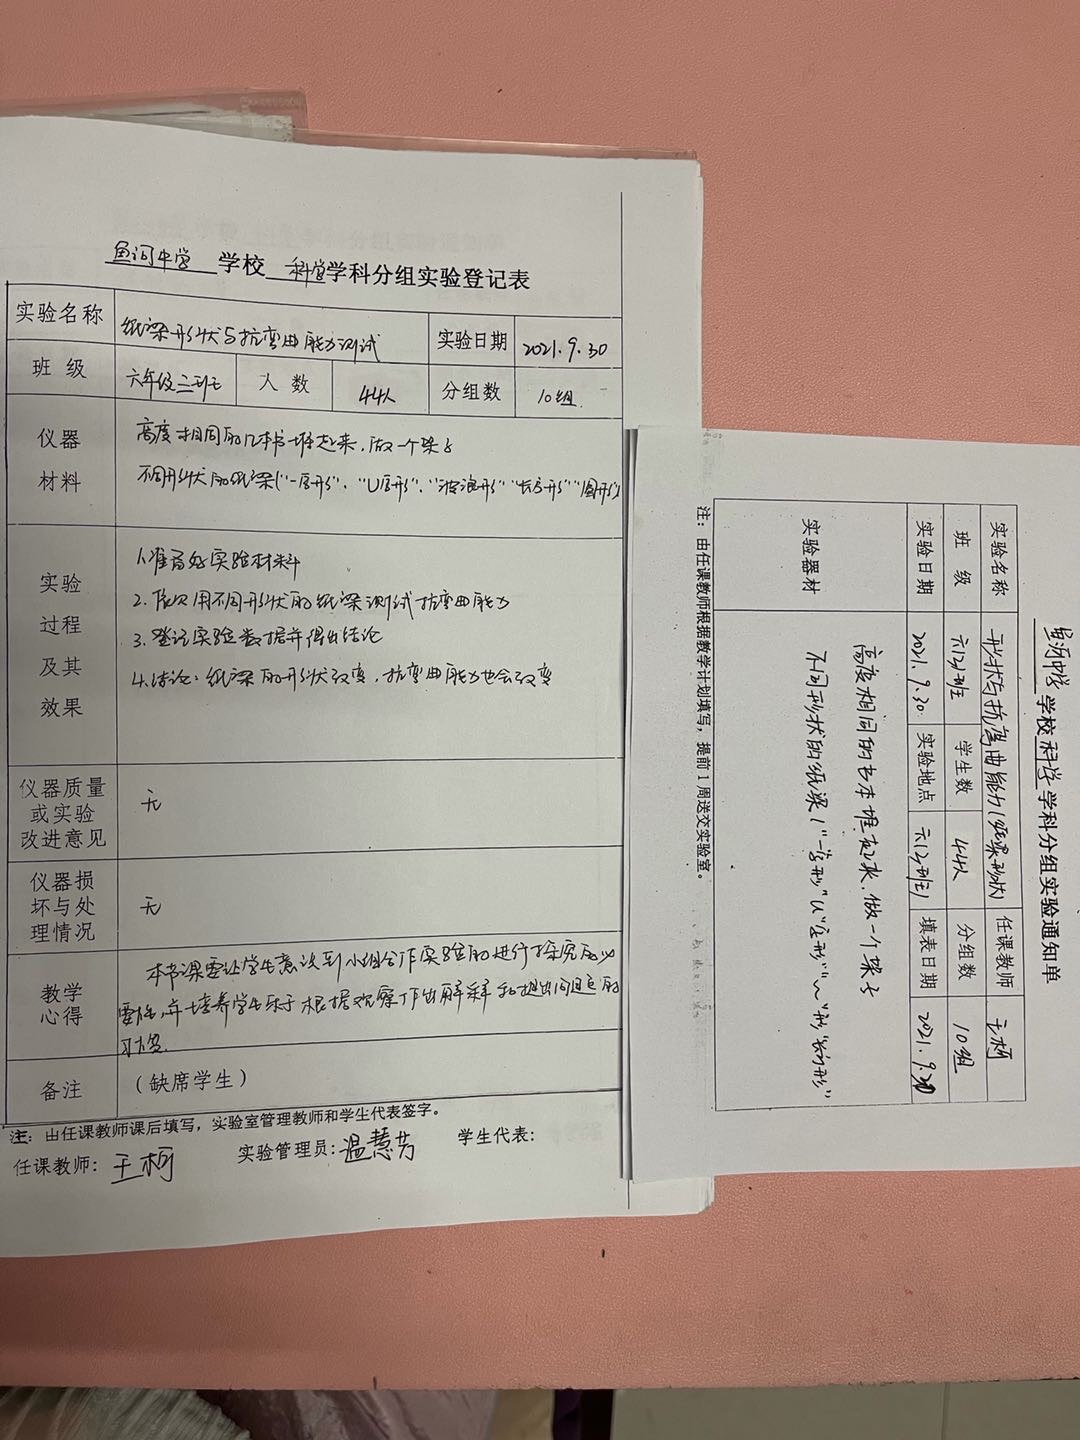 鱼河中学 学校 科学 学科分组实验登记表
实验名称 纸梁形状与抗弯曲能力测试 实验日期 2021.9.30
班 级 六年级三班 人 数 44人 分组数 10组
仪器材料
高度相同的几本书堆起来,做一个架子
不同形状的纸梁("一字形"、"U字形"、"波浪形""长方形""圆形")
实验过程及其效果
1.准备好实验材料
2.依次用不同形状的纸梁测试抗弯曲能力
3.登记实验数据并得出结论
4.结论:纸梁的形状改变,抗弯曲能力也会改变
仪器质量或实验改进意见 无
仪器损坏与处理情况 无
教学心得
本节课要让学生意识到小组合作实验的进行探究的必
要性,并培养学生乐于根据观察作出解释和提出问题的
习惯
备注 (缺席学生)
注:由任课教师课后填写,实验室管理教师和学生代表签字。
任课教师:王柯 实验管理员:温慧芳 学生代表:
鱼河中学 学校 科学 学科分组实验通知单
实验名称 形状与抗弯曲能力(纸梁形状) 任课教师 王柯
班 级 六(3)班 学生数 44人 分组数 10组
实验日期 2021.9.30 实验地点 六(3)班 填表日期 2021.9.20
实验器材
高度相同的书本堆起来,做一个架子
不同形状的纸梁("一字形""U"字形"""形"长方形"
注:由任课教师根据教学计划填写,提前1周送交实验室。